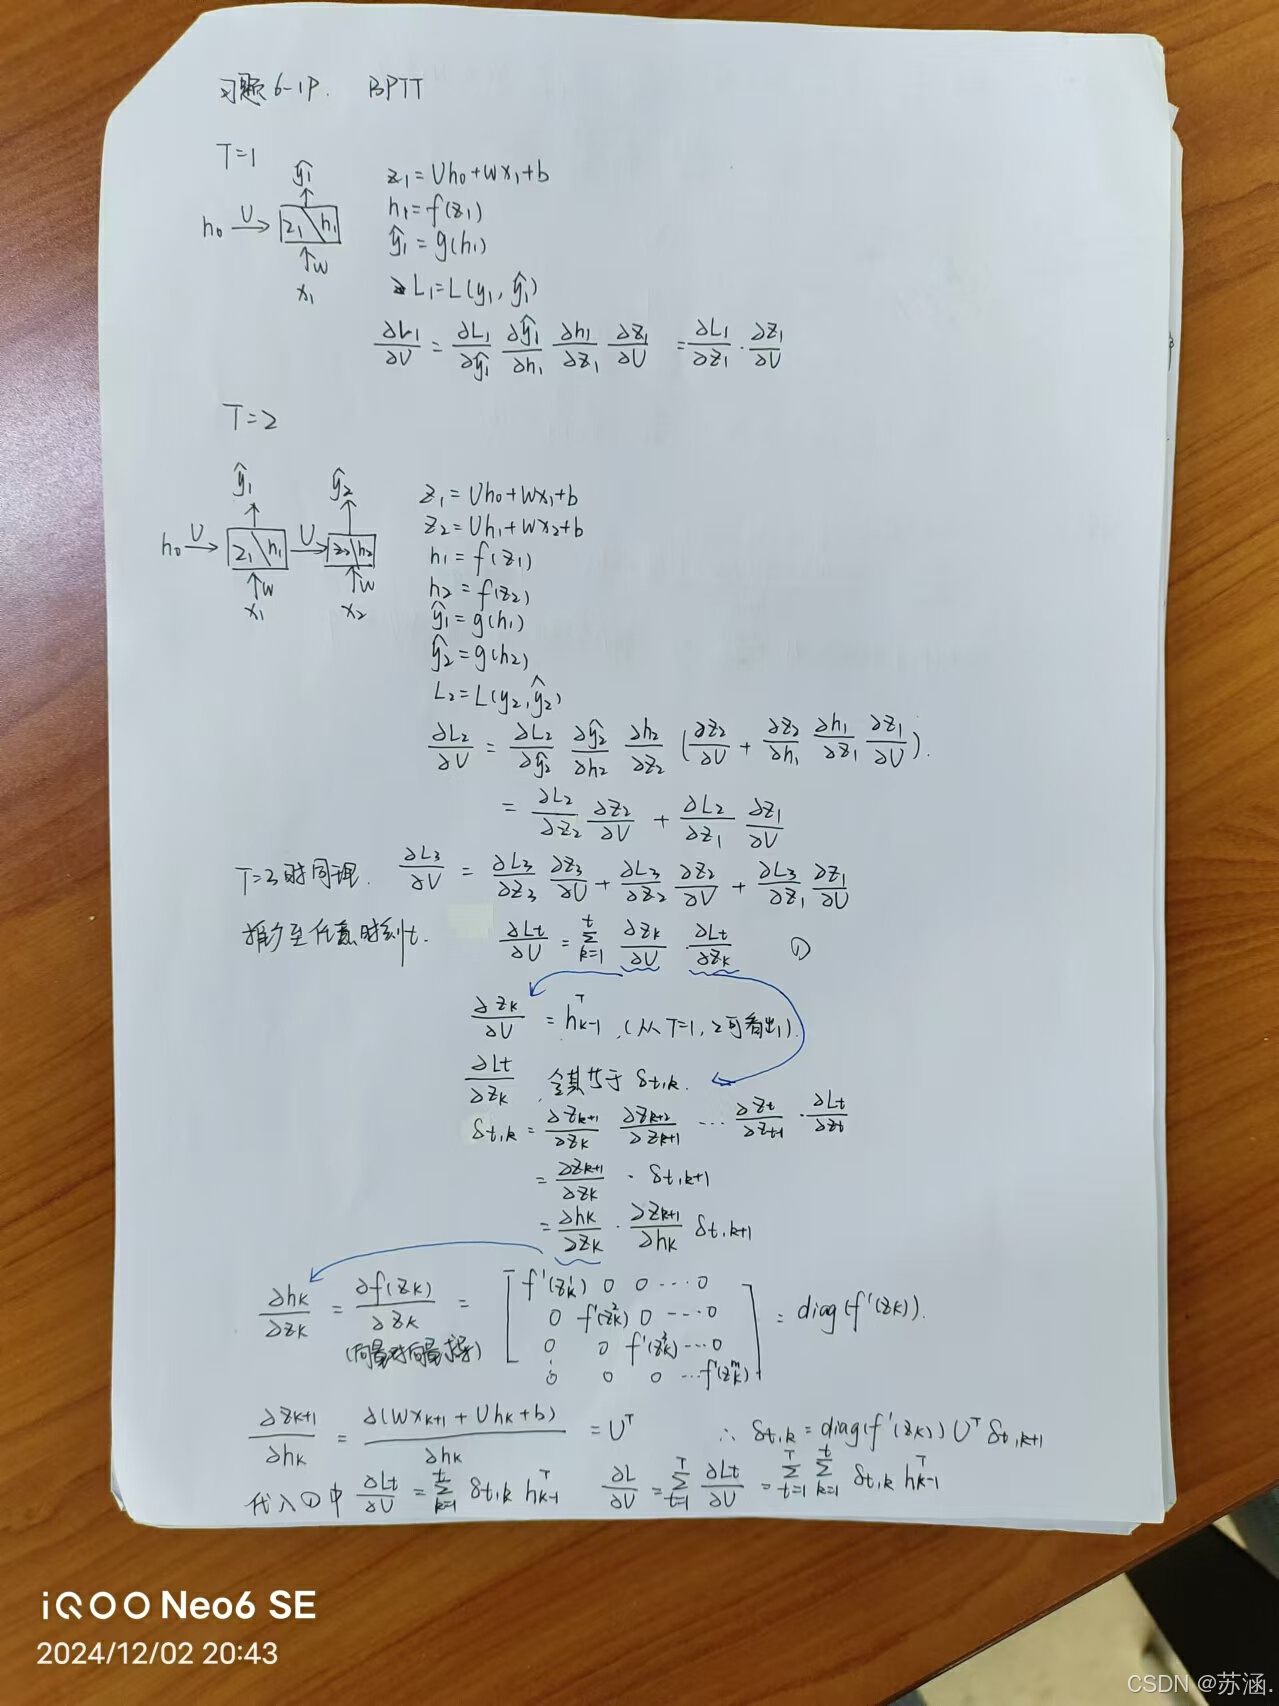 习题6-1P. BPTT
T=1
ŷ₁
h₀ U z₁ h₁
W
x₁
z₁=Uh₀+Wx₁+b
h₁=f(z₁)
ŷ₁=g(h₁)
L₁=L(y₁,ŷ₁)
∂L₁/∂U = ∂L₁/∂ŷ₁ ∂ŷ₁/∂h₁ ∂h₁/∂z₁ ∂z₁/∂U = ∂L₁/∂z₁ · ∂z₁/∂U
T=2
ŷ₁ ŷ₂
h₀ U z₁ h₁ U z₂ h₂
W W
x₁ x₂
z₁=Uh₀+Wx₁+b
z₂=Uh₁+Wx₂+b
h₁=f(z₁)
h₂=f(z₂)
ŷ₁=g(h₁)
ŷ₂=g(h₂)
L₂=L(y₂,ŷ₂)
∂L₂/∂U = ∂L₂/∂ŷ₂ ∂ŷ₂/∂h₂ ∂h₂/∂z₂ (∂z₂/∂U + ∂z₂/∂h₁ ∂h₁/∂z₁ ∂z₁/∂U).
= ∂L₂/∂z₂ ∂z₂/∂U + ∂L₂/∂z₁ ∂z₁/∂U
T=3时同理. ∂L₃/∂U = ∂L₃/∂z₃ ∂z₃/∂U + ∂L₃/∂z₂ ∂z₂/∂U + ∂L₃/∂z₁ ∂z₁/∂U
推广至任意时刻t. ∂Lt/∂U = Σₖ₌₁ᵗ ∂zₖ/∂U · ∂Lt/∂zₖ ①
∂zₖ/∂U = hₖ₋₁ᵀ.(从T=1,2可看出)
∂Lt/∂zₖ 令其等于 δt,k.
δt,k = ∂zₖ₊₁/∂zₖ ∂zₖ₊₂/∂zₖ₊₁ ⋯ ∂zt/∂zt-1 · ∂Lt/∂zt
= ∂zₖ₊₁/∂zₖ · δt,k+1
= ∂hₖ/∂zₖ · ∂zₖ₊₁/∂hₖ δt,k+1
∂hₖ/∂zₖ = ∂f(zₖ)/∂zₖ = [f'(zₖ¹) 0 0 ⋯ 0
0 f'(zₖ²) 0 ⋯ 0
0 0 f'(zₖ³) ⋯ 0
⋮ 0 0 0 ⋯ f'(zₖᵐ)] = diag(f'(zₖ)).
(向量对向量求导)
∂zₖ₊₁/∂hₖ = ∂(Wxₖ₊₁+Uhₖ+b)/∂hₖ = Uᵀ ∴ δt,k = diag(f'(zₖ))Uᵀδt,k+1
代入①中 ∂Lt/∂U = Σₖ₌₁ᵗ δt,k hₖ₋₁ᵀ ∂L/∂U = Σₜ₌₁ᵀ ∂Lt/∂U = Σₜ₌₁ᵀ Σₖ₌₁ᵗ δt,k hₖ₋₁ᵀ
iQOO Neo6 SE
2024/12/02 20:43
CSDN @苏涵.